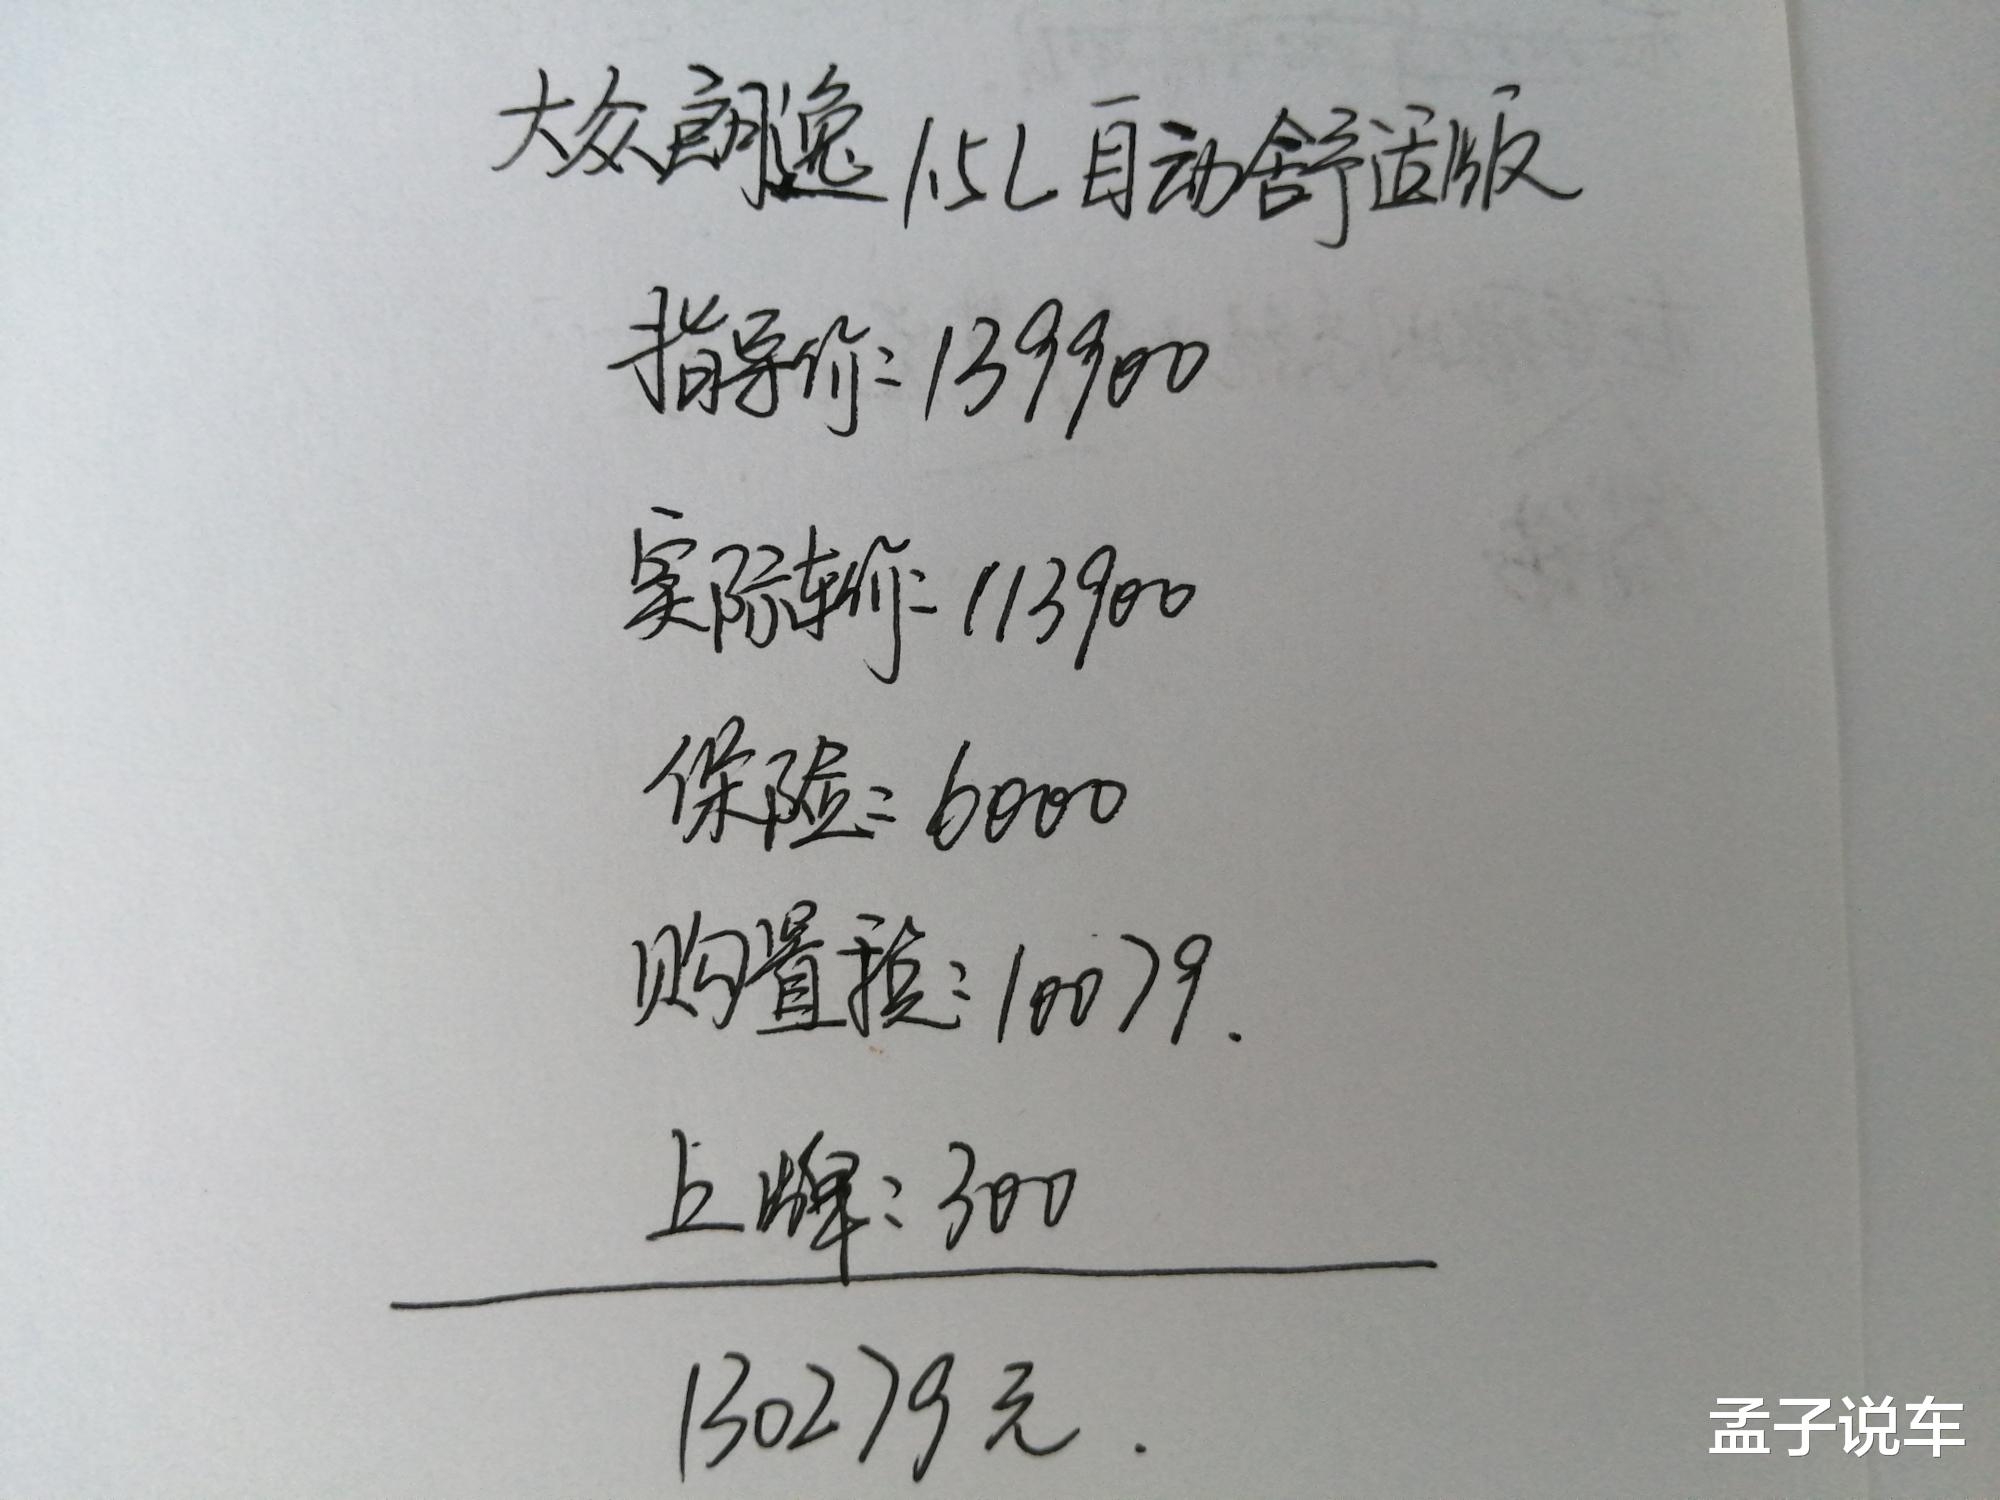 大众朗逸1.5L自动舒适版
指导价:139900
实际车价:113900
保险:6000
购置税:10079.
上牌:300
130279元.
孟子说车